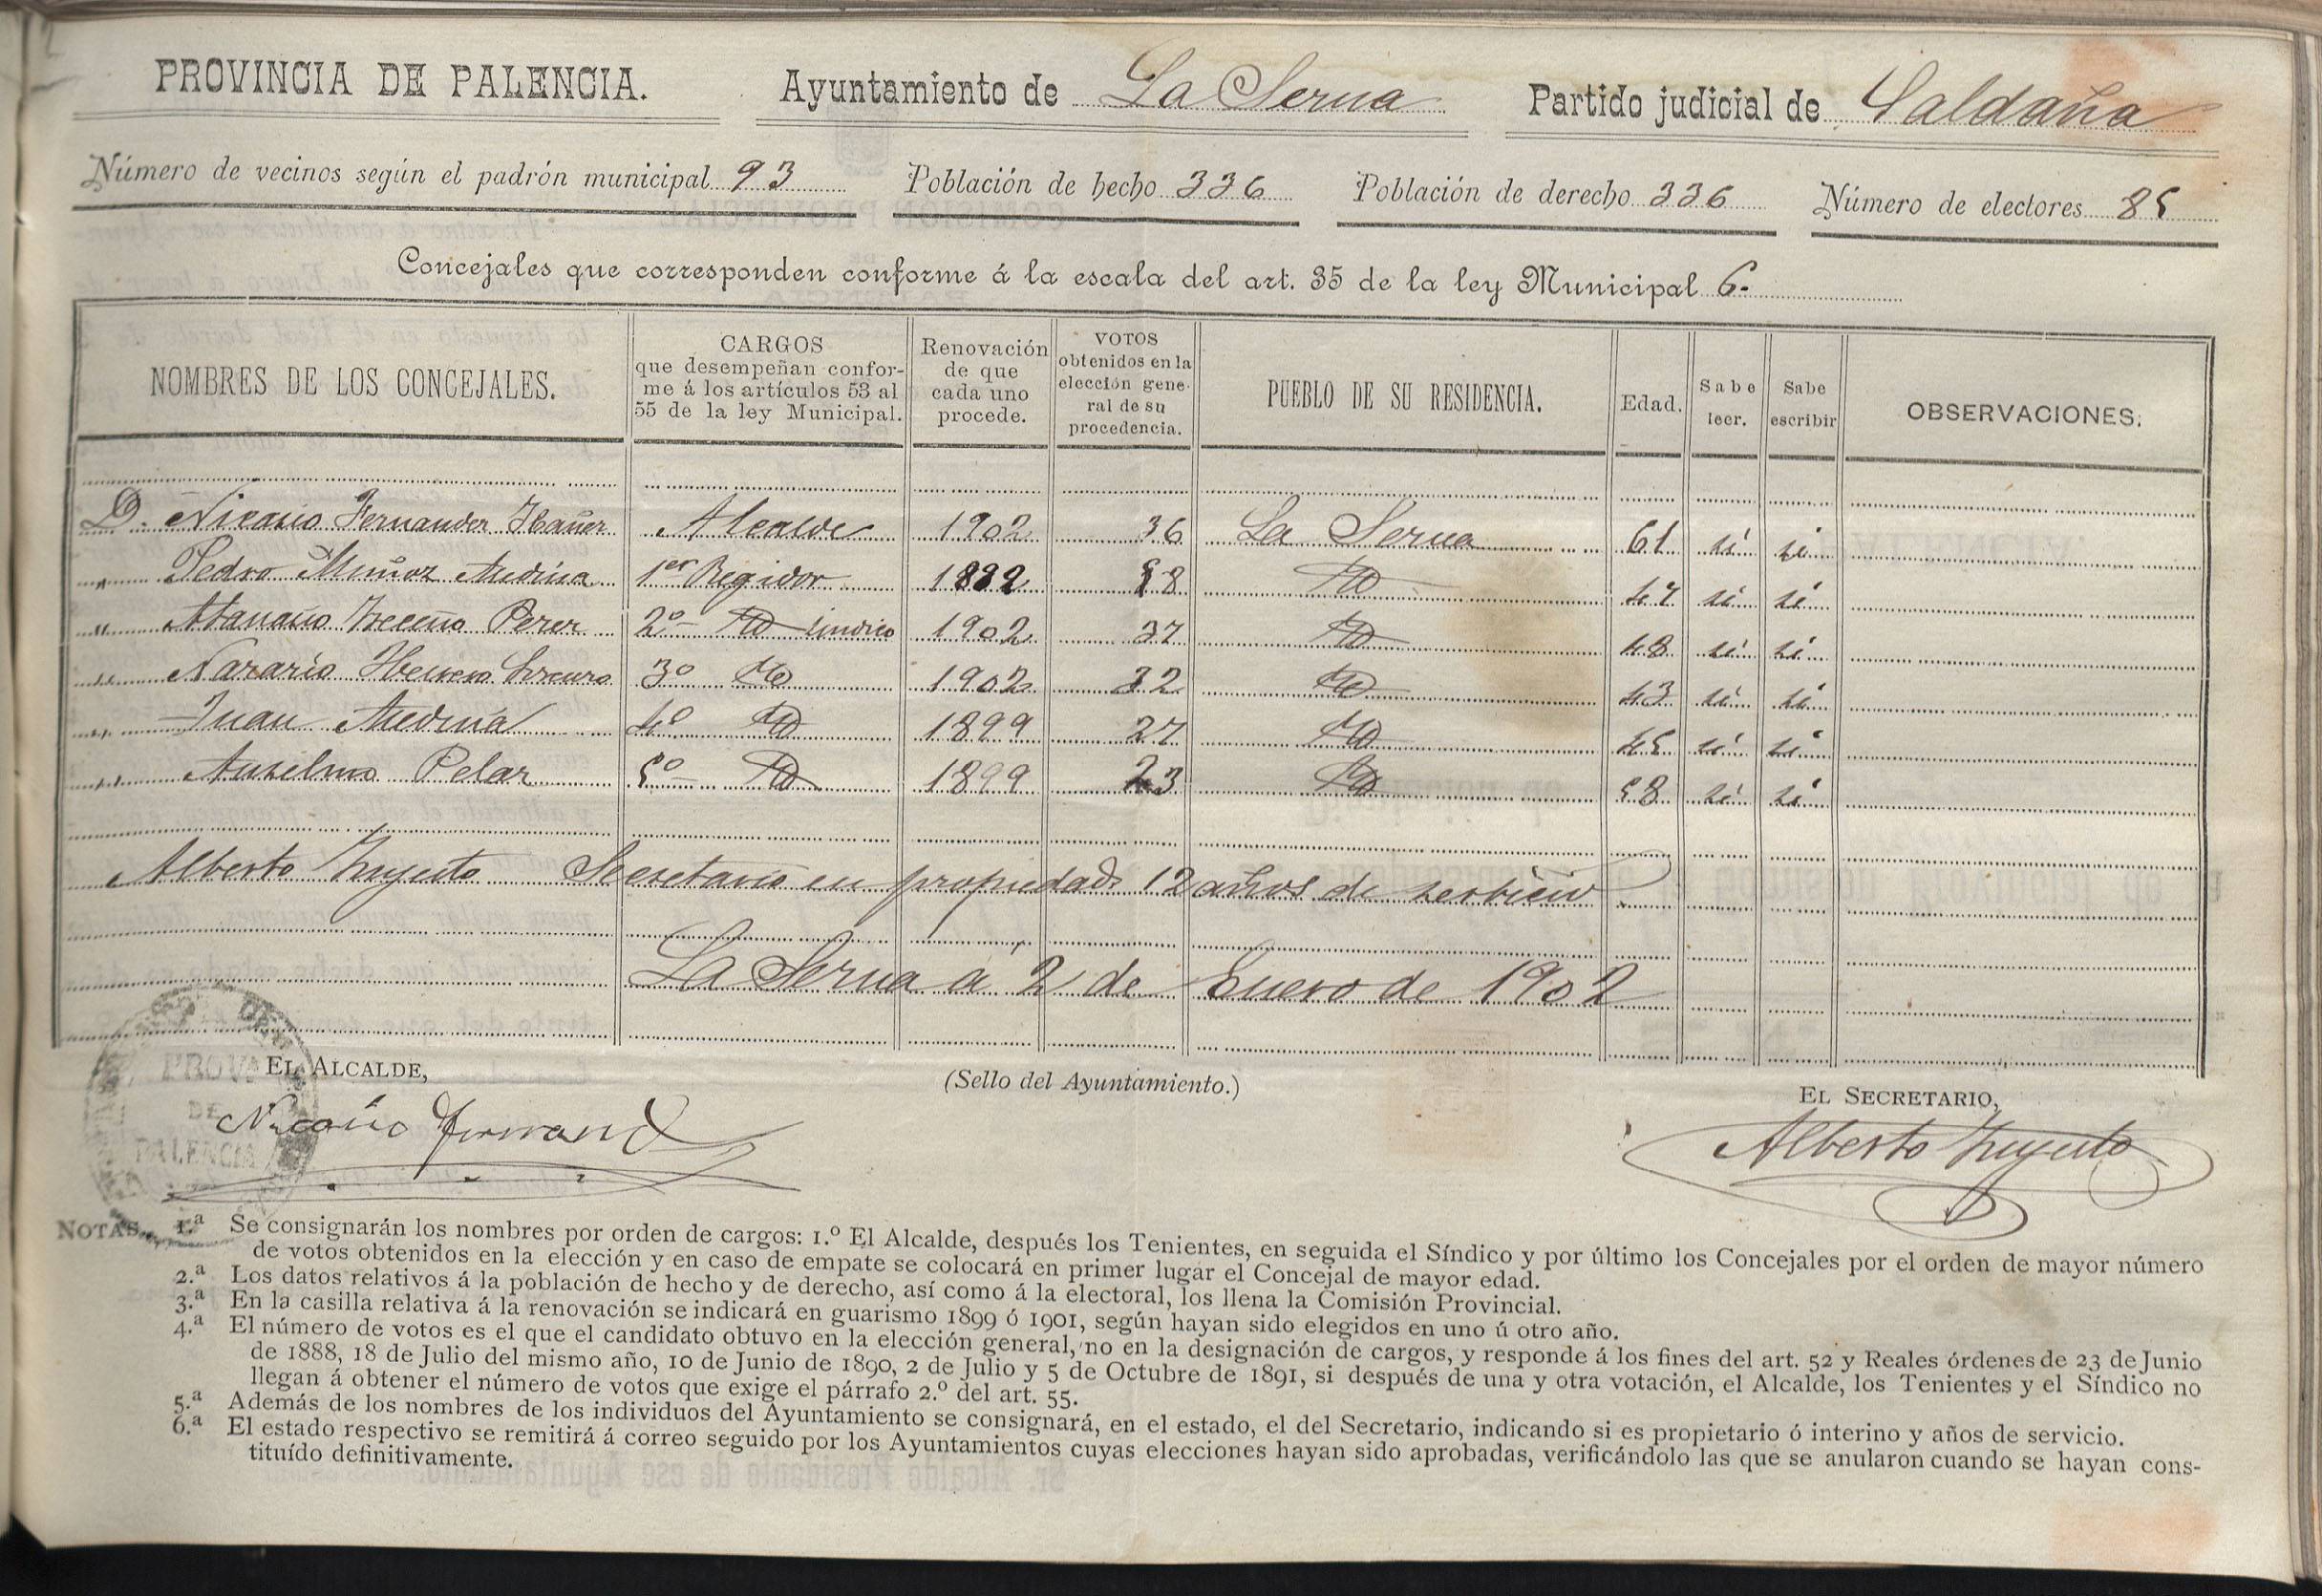 PROVINCIA DE PALENCIA. Ayuntamiento de La Serna Partido judicial de Saldaña
Número de vecinos según el padrón municipal 93 Población de hecho 336 Población de derecho 336 Número de electores 85
Concejales que corresponden conforme á la escala del art. 35 de la ley Municipal 6.
NOMBRES DE LOS CONCEJALES. CARGOS que desempeñan confor- me á los artículos 53 al 55 de la ley Municipal. Renovación de que cada uno procede. VOTOS obtenidos en la elección gene- ral de su procedencia. PUEBLO DE SU RESIDENCIA. Edad. Sabe leer. Sabe escribir OBSERVACIONES.
D. Nicasio Fernander Ibañer Alcalde 1902 36 La Serna 61 si si
" Pedro Muñoz Medina 1er Regidor 18 Id 47 si si
" Atanasio Treceño Perer 2º Id sindico 1902 37 Id 48 si si
" Narario Herrero 3º Id 1902 32 Id 43 si si
" Juan Medina 4º Id 1899 27 Id 45 si si
" Anselmo Pelar 5º Id 1899 23 Id 58 si si
Alberto Secretario en propiedad 12 años de serbicio
La Serna á 2 de Enero de 1902
EL ALCALDE, (Sello del Ayuntamiento.) EL SECRETARIO,
PROVA DE PALENCIA
Nicasio Fernand Alberto
NOTAS. 1.ª Se consignarán los nombres por orden de cargos: 1.º El Alcalde, después los Tenientes, en seguida el Síndico y por último los Concejales por el orden de mayor número
de votos obtenidos en la elección y en caso de empate se colocará en primer lugar el Concejal de mayor edad.
2.ª Los datos relativos á la población de hecho y de derecho, así como á la electoral, los llena la Comisión Provincial.
3.ª En la casilla relativa á la renovación se indicará en guarismo 1899 ó 1901, según hayan sido elegidos en uno ú otro año.
4.ª El número de votos es el que el candidato obtuvo en la elección general, no en la designación de cargos, y responde á los fines del art. 52 y Reales órdenes de 23 de Junio
de 1888, 18 de Julio del mismo año, 10 de Junio de 1890, 2 de Julio y 5 de Octubre de 1891, si después de una y otra votación, el Alcalde, los Tenientes y el Síndico no
llegan á obtener el número de votos que exige el párrafo 2.º del art. 55.
5.ª Además de los nombres de los individuos del Ayuntamiento se consignará, en el estado, el del Secretario, indicando si es propietario ó interino y años de servicio.
6.ª El estado respectivo se remitirá á correo seguido por los Ayuntamientos cuyas elecciones hayan sido aprobadas, verificándolo las que se anularon cuando se hayan cons-
tituído definitivamente.